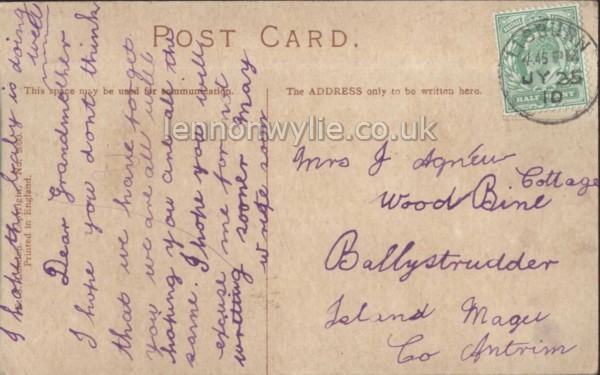 POST CARD.
This space may be used for communication.
The ADDRESS only to be written here.
LISBURN
4.45 PM
JY 25
10
HALF
lennonwylie.co.uk
Printed in England.
I hope the baby is doing
well
Dear Grandmother
I hope you dont think
that we have forgot
you we are all well
hoping you are all the
same. I hope you will
excuse me for not
writting sooner May
write soon
Mrs J Agnew
Wood Bine Cottage
Ballystrudder
Island Magee
Co Antrim